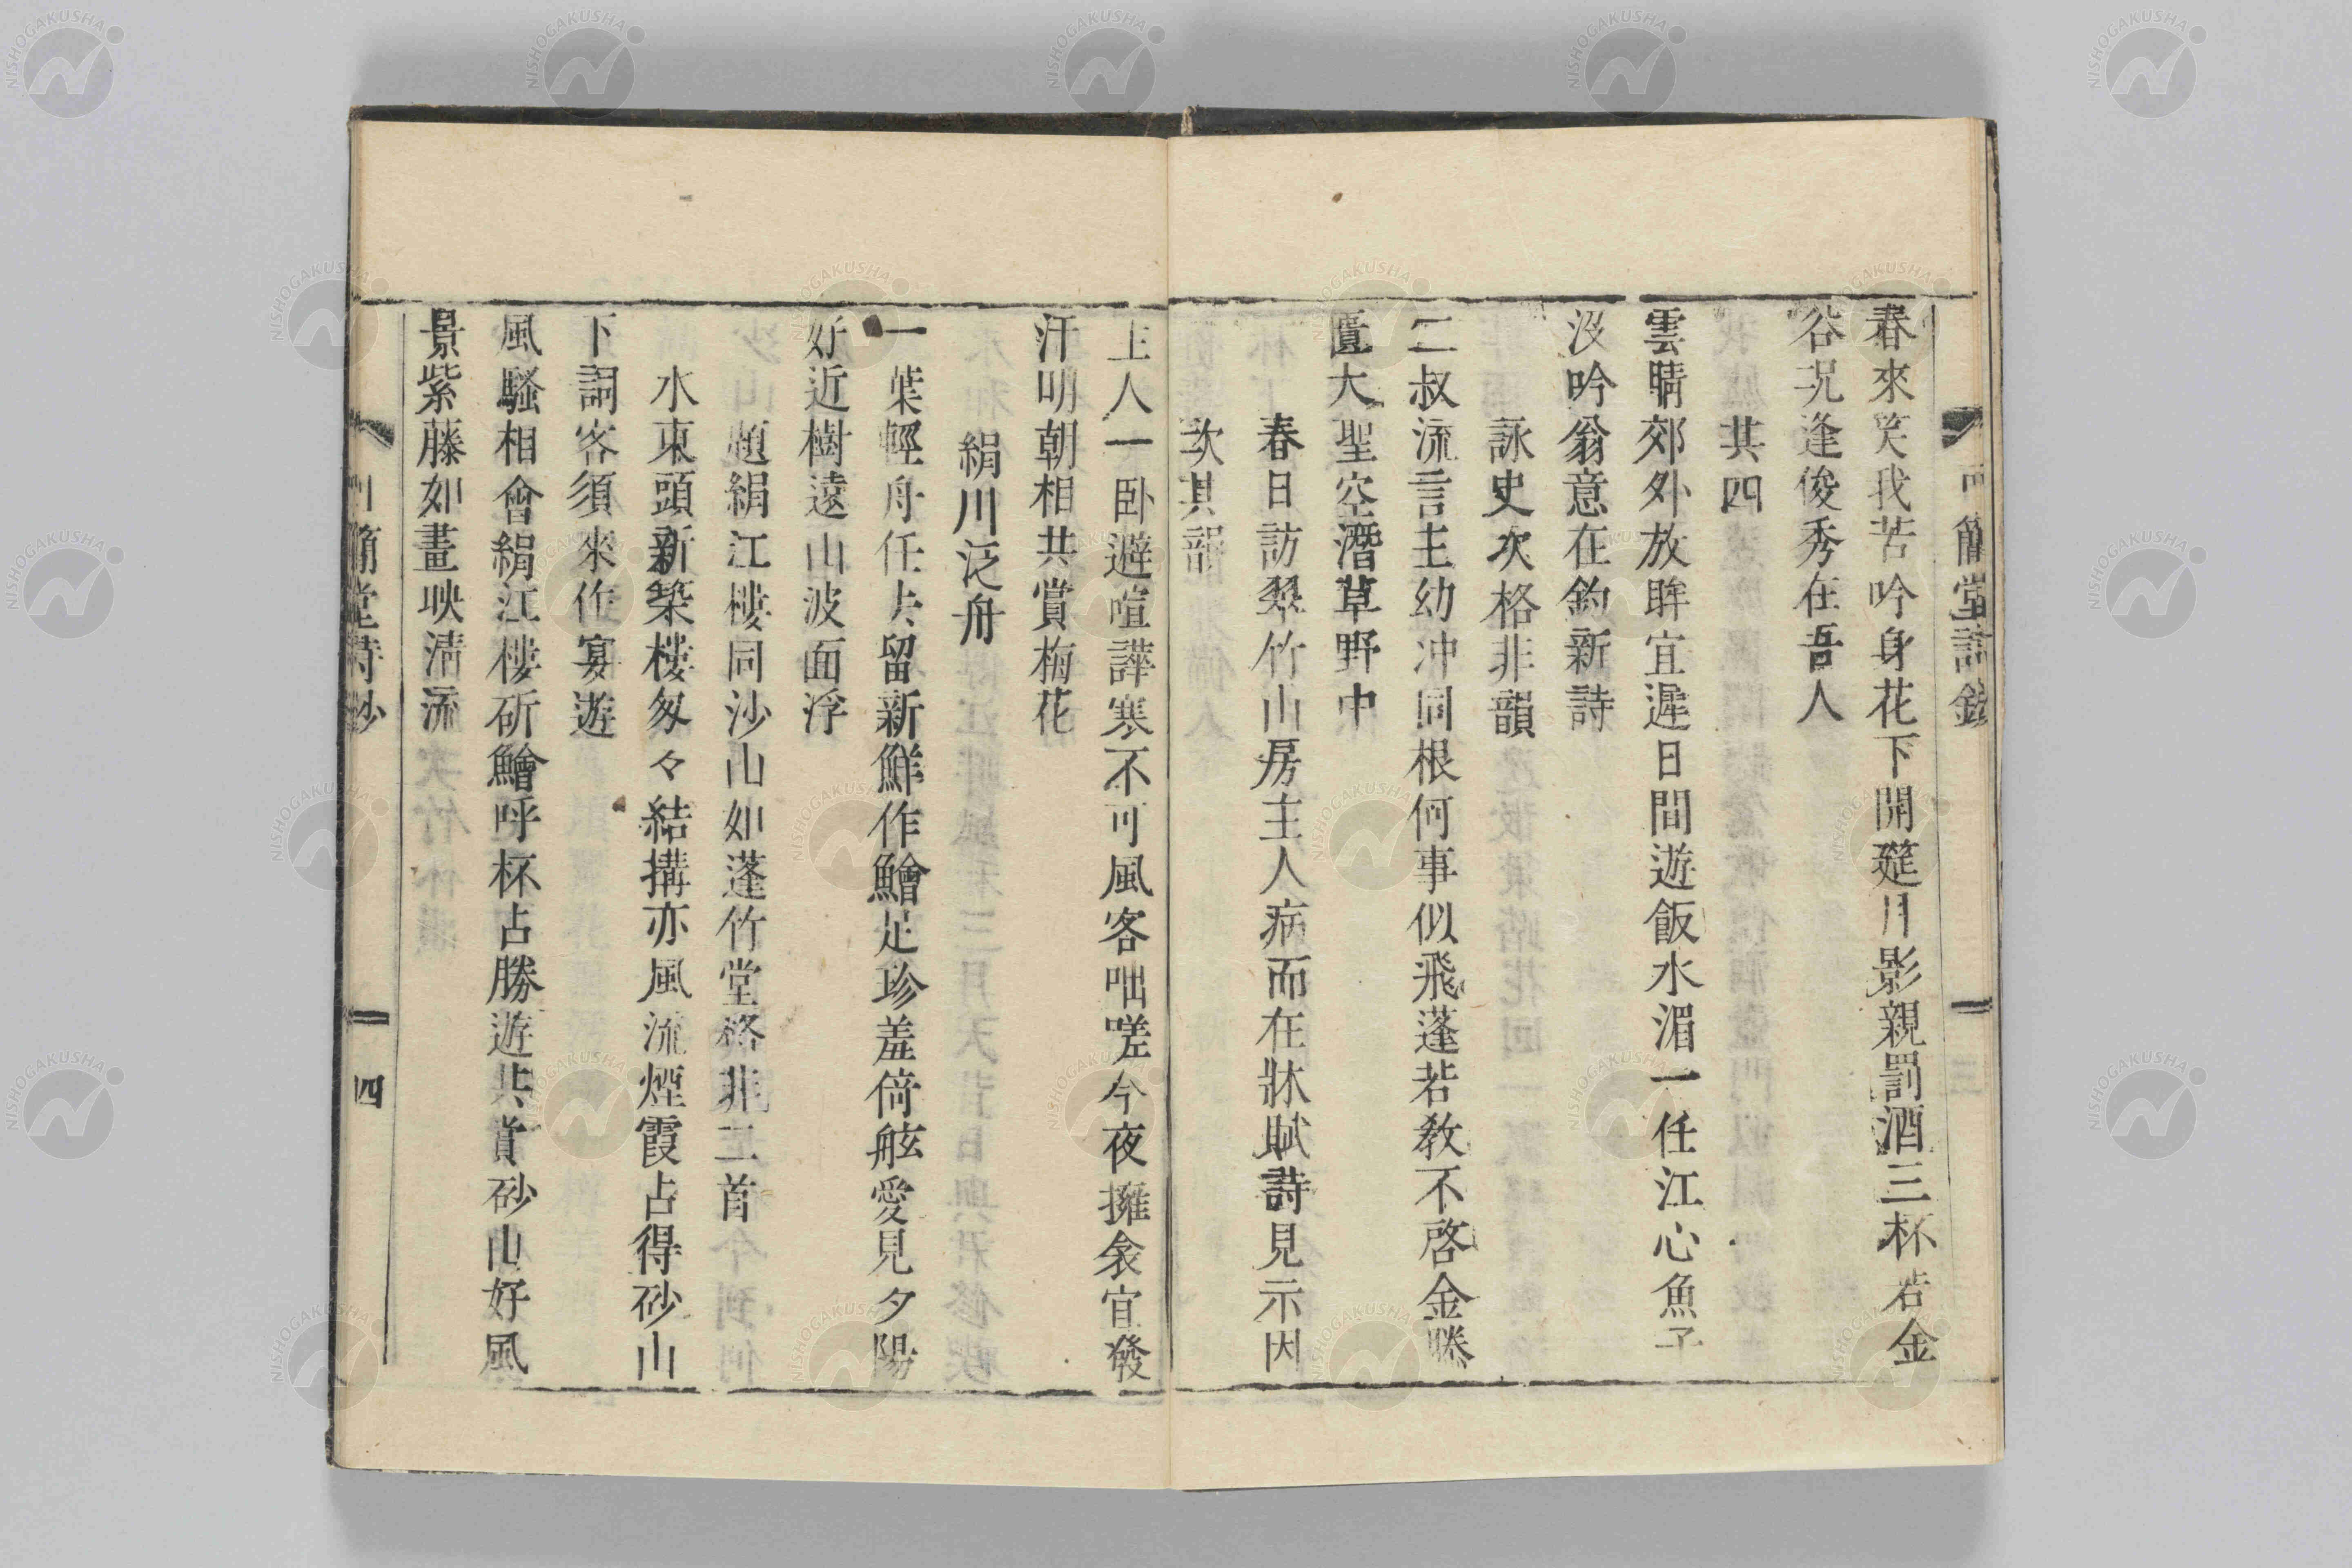 春來笑我苦吟身花下開筵月影親罰酒三杯若金
谷况逢俊秀在吾人
其四
雲晴郊外放眸宜遲日間遊飯水湄一任江心魚子
没吟翁意在釣新詩
詠史次格非韻
二叔流言主幼冲同根何事似飛蓬若教不啓金縢
匱大聖空潛草野中
春日訪翠竹山房主人病而在牀賦詩見示因
次其韻
主人一卧避喧譁寒不可風客咄嗟今夜擁衾宜發
汗明朝相共賞梅花
絹川泛舟
一葉輕舟任去留新鮮作鱠足珍羞倚舷愛見夕陽
好近樹遠山波面浮
題絹江樓同沙山如蓬竹堂格非二首
水東頭新築樓匆々結搆亦風流煙霞占得砂山
下詞客須來作宴遊
風騷相會絹江樓斫鱠呼杯占勝遊共賞砂山好風
景紫藤如畫映清流
簡堂詩鈔
三
簡堂詩鈔
四
NISHOGAKUSHA